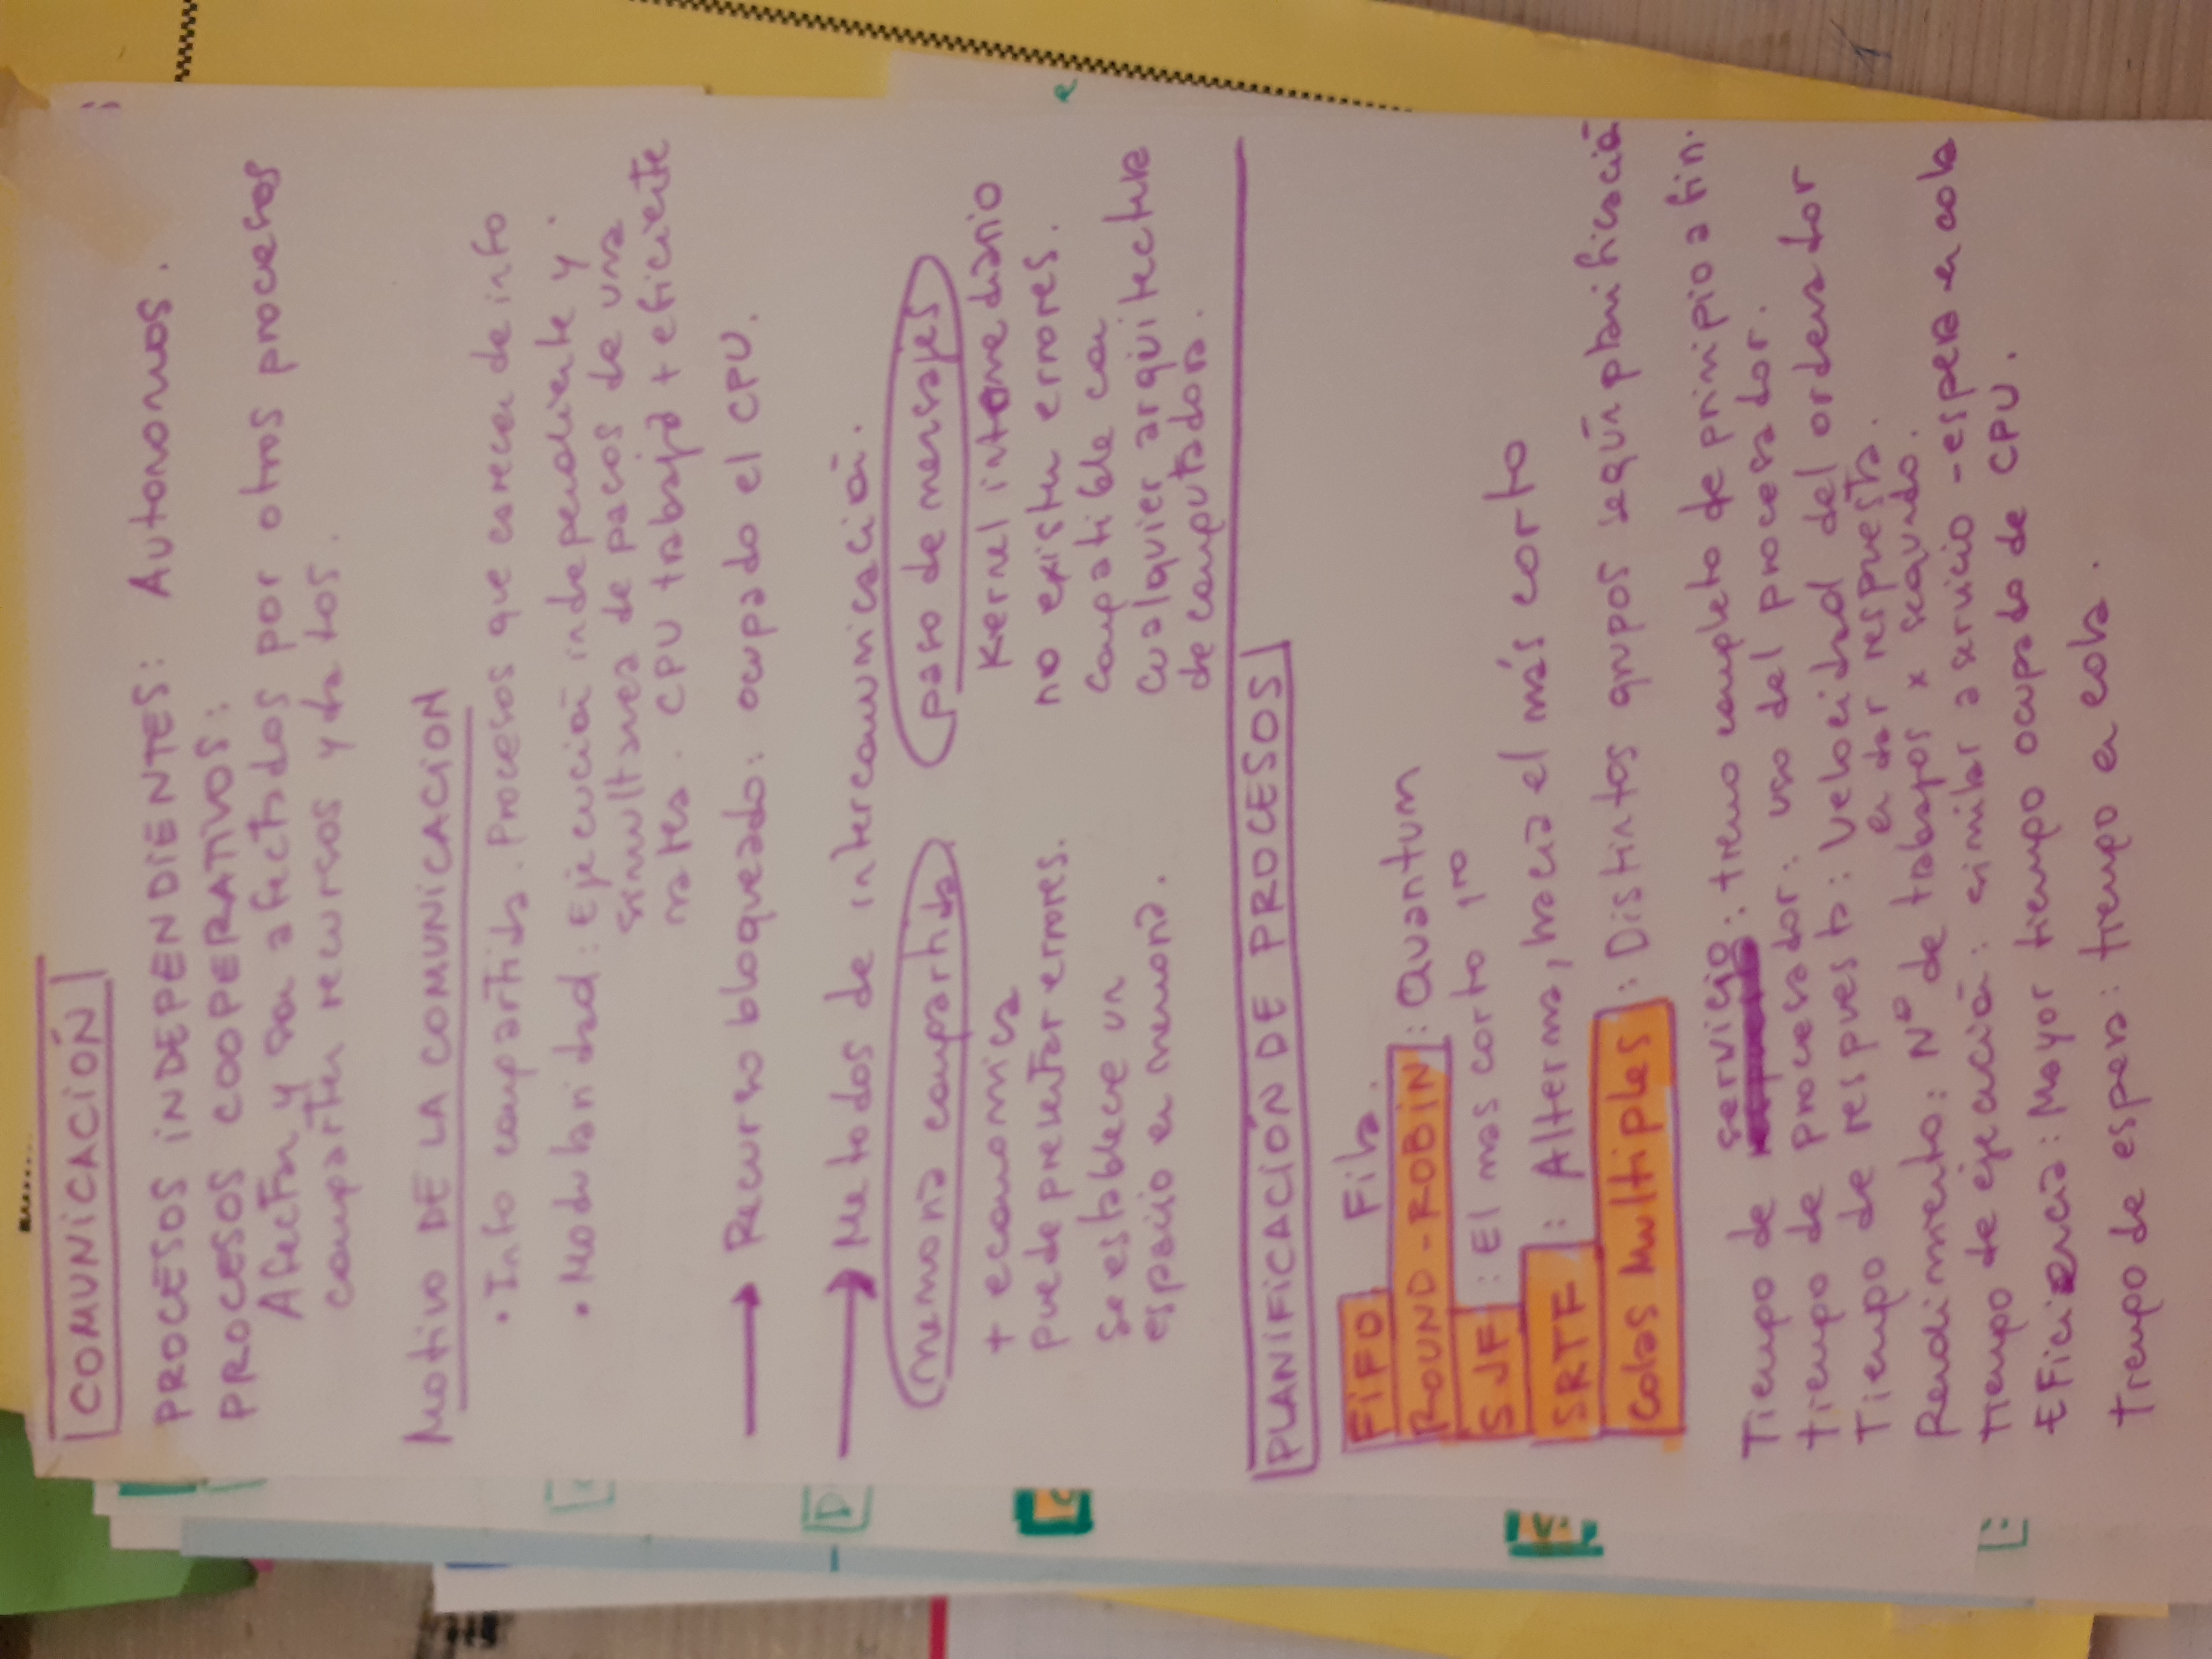 COMUNICACIÓN
PROCESOS INDEPENDIENTES: Autonomos.
PROCESOS COOPERATIVOS:
Afectan y son afectados por otros procesos
comparten recursos y datos.
Motivo DE LA COMUNICACION
• Info compartida. Procesos que carecen de info
• Modularidad: Ejecución independiente y
simultanea de pasos de una
CPU trabaja + eficiente
→ Recurso bloqueado: ocupado el CPU.
→ Metodos de intercomunicación.
memoria compartida
+ economica
puede presentar errores.
se establece un
espacio en memoria.
paso de mensajes
Kernel intermediario
no existen errores.
compatible con
cualquier arquitectura
de computadora.
PLANIFICACIÓN DE PROCESOS
FIFO Fila.
ROUND-ROBIN: Quantum
SJF: El mas corto 1ro
SRTF: Alterna, hacia el más corto
Colas Multiples: Distintos grupos según planificación
Tiempo de servicio: completo de prinipio a fin.
tiempo de procesador: uso del procesador.
Tiempo de respuesta: Velocidad del ordenador
en dar respuesta.
Rendimiento: Nº de trabajos x segundo.
tiempo de ejecución: similar a servicio - espera en cola
Eficiencia: Mayor tiempo ocupado de CPU.
tiempo de espera: tiempo en cola.